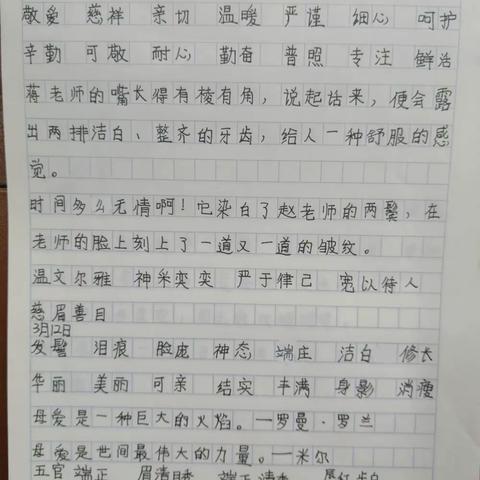 敬爱 慈祥 亲切 温暖 严谨 细心 呵护
辛勤 可敬 耐心 勤奋 普照 专注 鲜活
蒋老师的嘴长得有棱有角，说起话来，便会露
出两排洁白、整齐的牙齿，给人一种舒服的感
觉。
时间多么无情啊！它染白了赵老师的两鬓，在
老师的脸上刻上了一道又一道的皱纹。
温文尔雅 神采奕奕 严于律己 宽以待人
慈眉善目
3月12日
发髻 泪痕 脸庞 神态 端庄 洁白 修长
华丽 美丽 可亲 结实 丰满 身影 消瘦
母爱是一种巨大的火焰。—罗曼·罗兰
母爱是世间最伟大的力量。—米尔
五官端正 眉清目秀 端正清秀